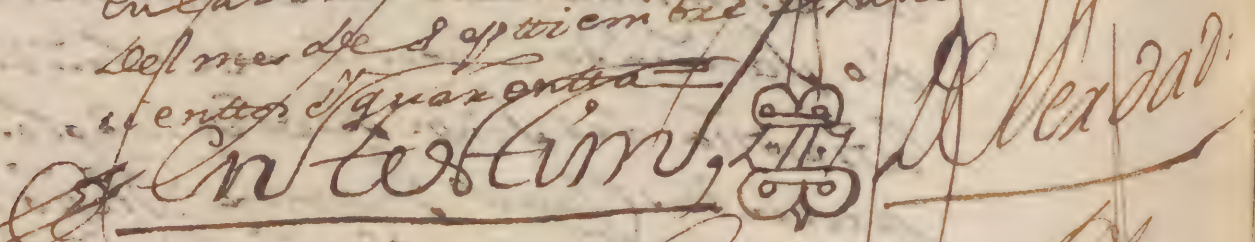 Del mes de Septtiembre
cienttos y quarentta
En testim,o de Verdad: